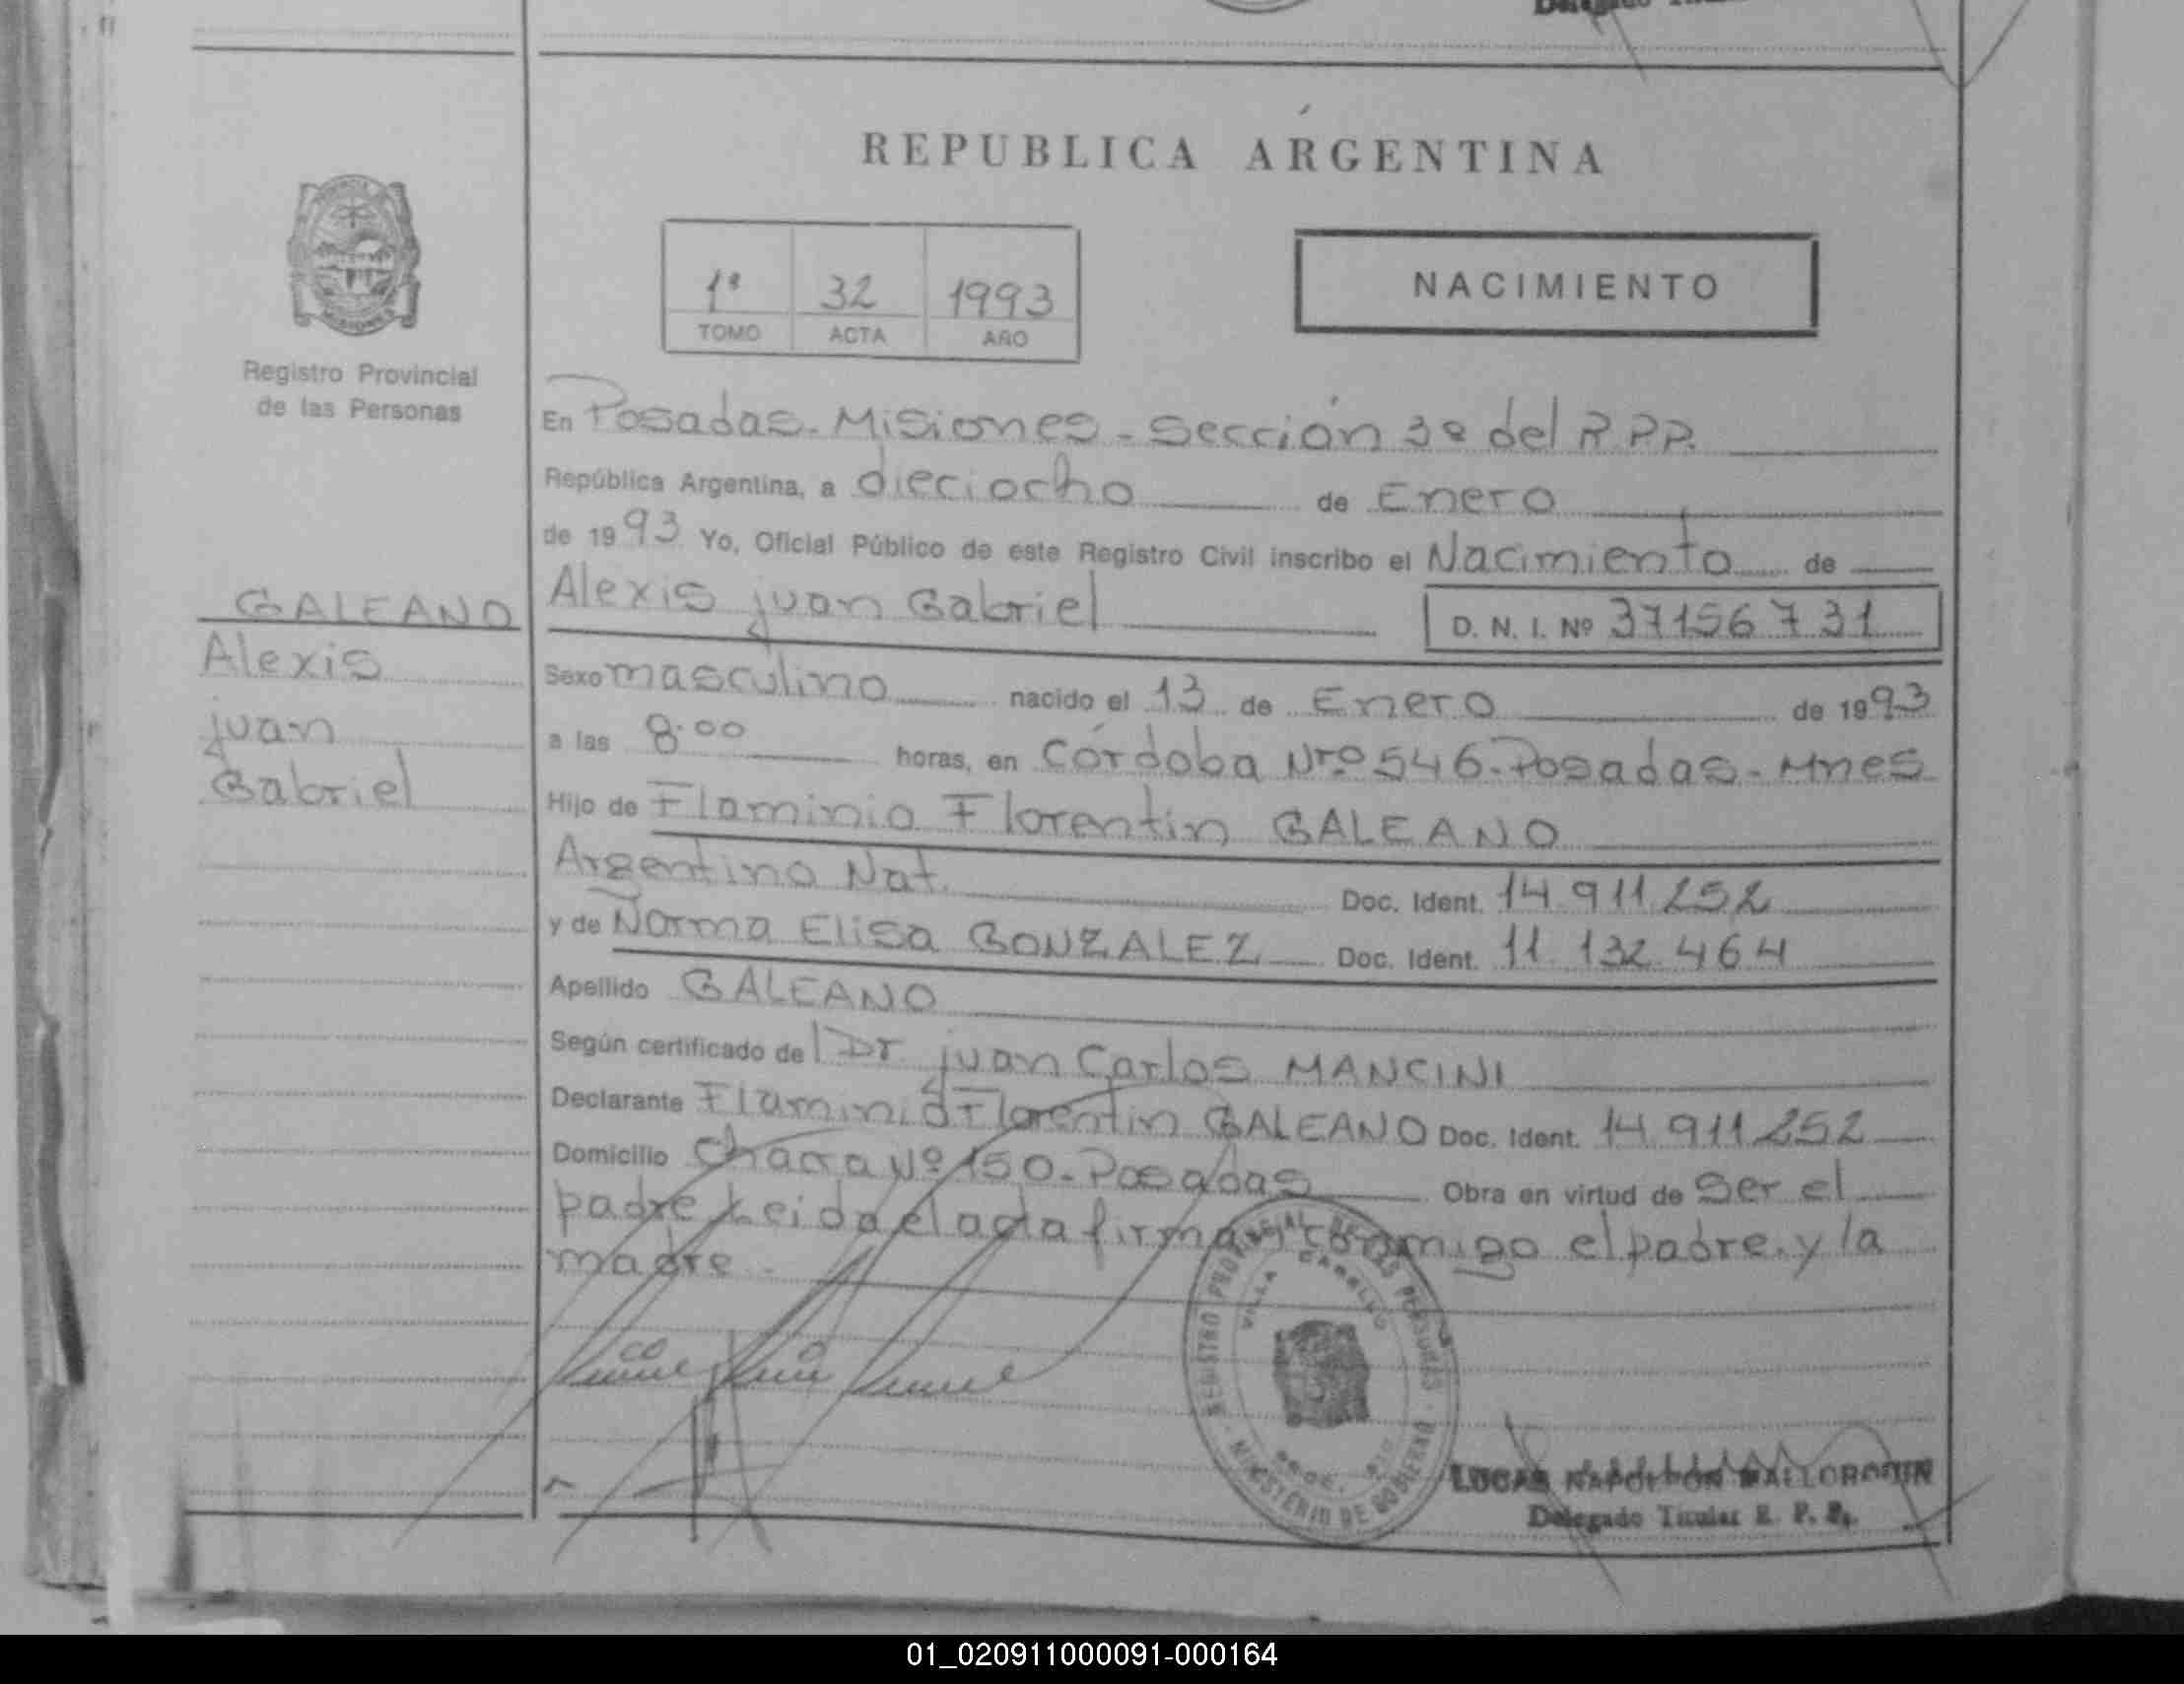 REPUBLICA ARGENTINA
1ª 32 1993
TOMO ACTA AÑO
NACIMIENTO
MISIONES
Registro Provincial
de las Personas
GALEANO
Alexis
juan
Gabriel
En Posadas-Misiones-Sección 3º del R.P.P.
República Argentina, a dieciocho de Enero
de 1993 Yo, Oficial Público de este Registro Civil inscribo el Nacimiento de
Alexis juan Gabriel D. N. I. Nº 37156731
Sexo masculino nacido el 13 de Enero de 1993
a las 8.00 horas, en Córdoba Nrº 546-Posadas-Mnes
Hijo de Flaminio Florentin GALEANO
Argentino Nat. Doc. Ident. 14.911.252
y de Norma Elisa GONZALEZ Doc. Ident. 11.132.464
Apellido GALEANO
Según certificado del Dr. juan Carlos MANCINI
Declarante Flaminio Florentin GALEANO Doc. Ident. 14.911.252
Domicilio Chacra Nº 150-Posadas Obra en virtud de Ser el
padre Leida el acta firman conmigo el padre y la
madre.
REGISTRO PROVINCIAL DE LAS PERSONAS · MINISTERIO DE GOBIERNO
VILLA CABELLO
LUCAS NAPOLEON
Delegado Titular R. P. P.
01_020911000091-000164